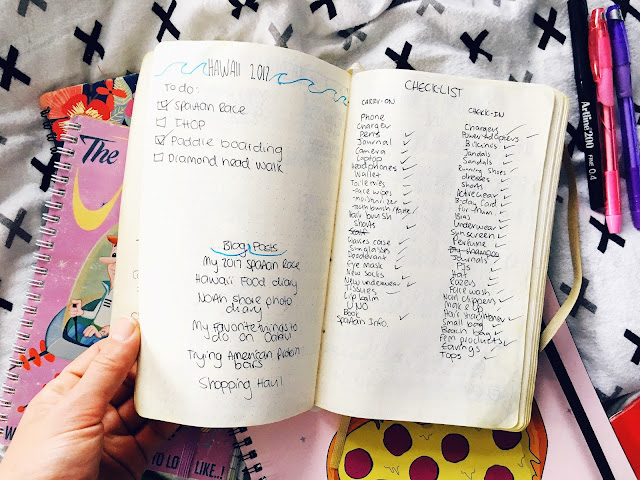 HAWAII 2017
To do:
Spartan Race
IHOP
Paddle boarding
Diamond head walk
Blog Posts
My 2017 Spartan Race
Hawaii Food diary
North shore photo
diary
My favorite things to
do on Oahu
Trying American Protein
bars
Shopping Haul
CHECKLIST
CARRY-ON
Phone
Charger
Pens
Journal
Camera
Laptop
Headphones
Wallet
Toiletries
-Face wipes
-moisturizer
-tooth brush/paste
Hair brush
Shorts
Scarf
Glasses case
Sunglasses
Deodorant
Eye mask
New socks
New underwear
Tissues
Lip balm
UNO
Book
Spartan Info.
CHECK-IN
Chargers
Power
Bikinis
Jandals
Sandals
Running Shoes
dresses
Shorts
Activewear
B-day Card
for Mum
Bras
Underwear
Sunscreen
Perfume
Dry shampoo
Journals
PJs
Hat
Razers
Face wash
Nail clippers
Make up
Hair straightener
Small bag
Beach bag
Fem products
Earrings
Tops
The
TO LO
LIKE..!
Artline 200
FINE 0.4